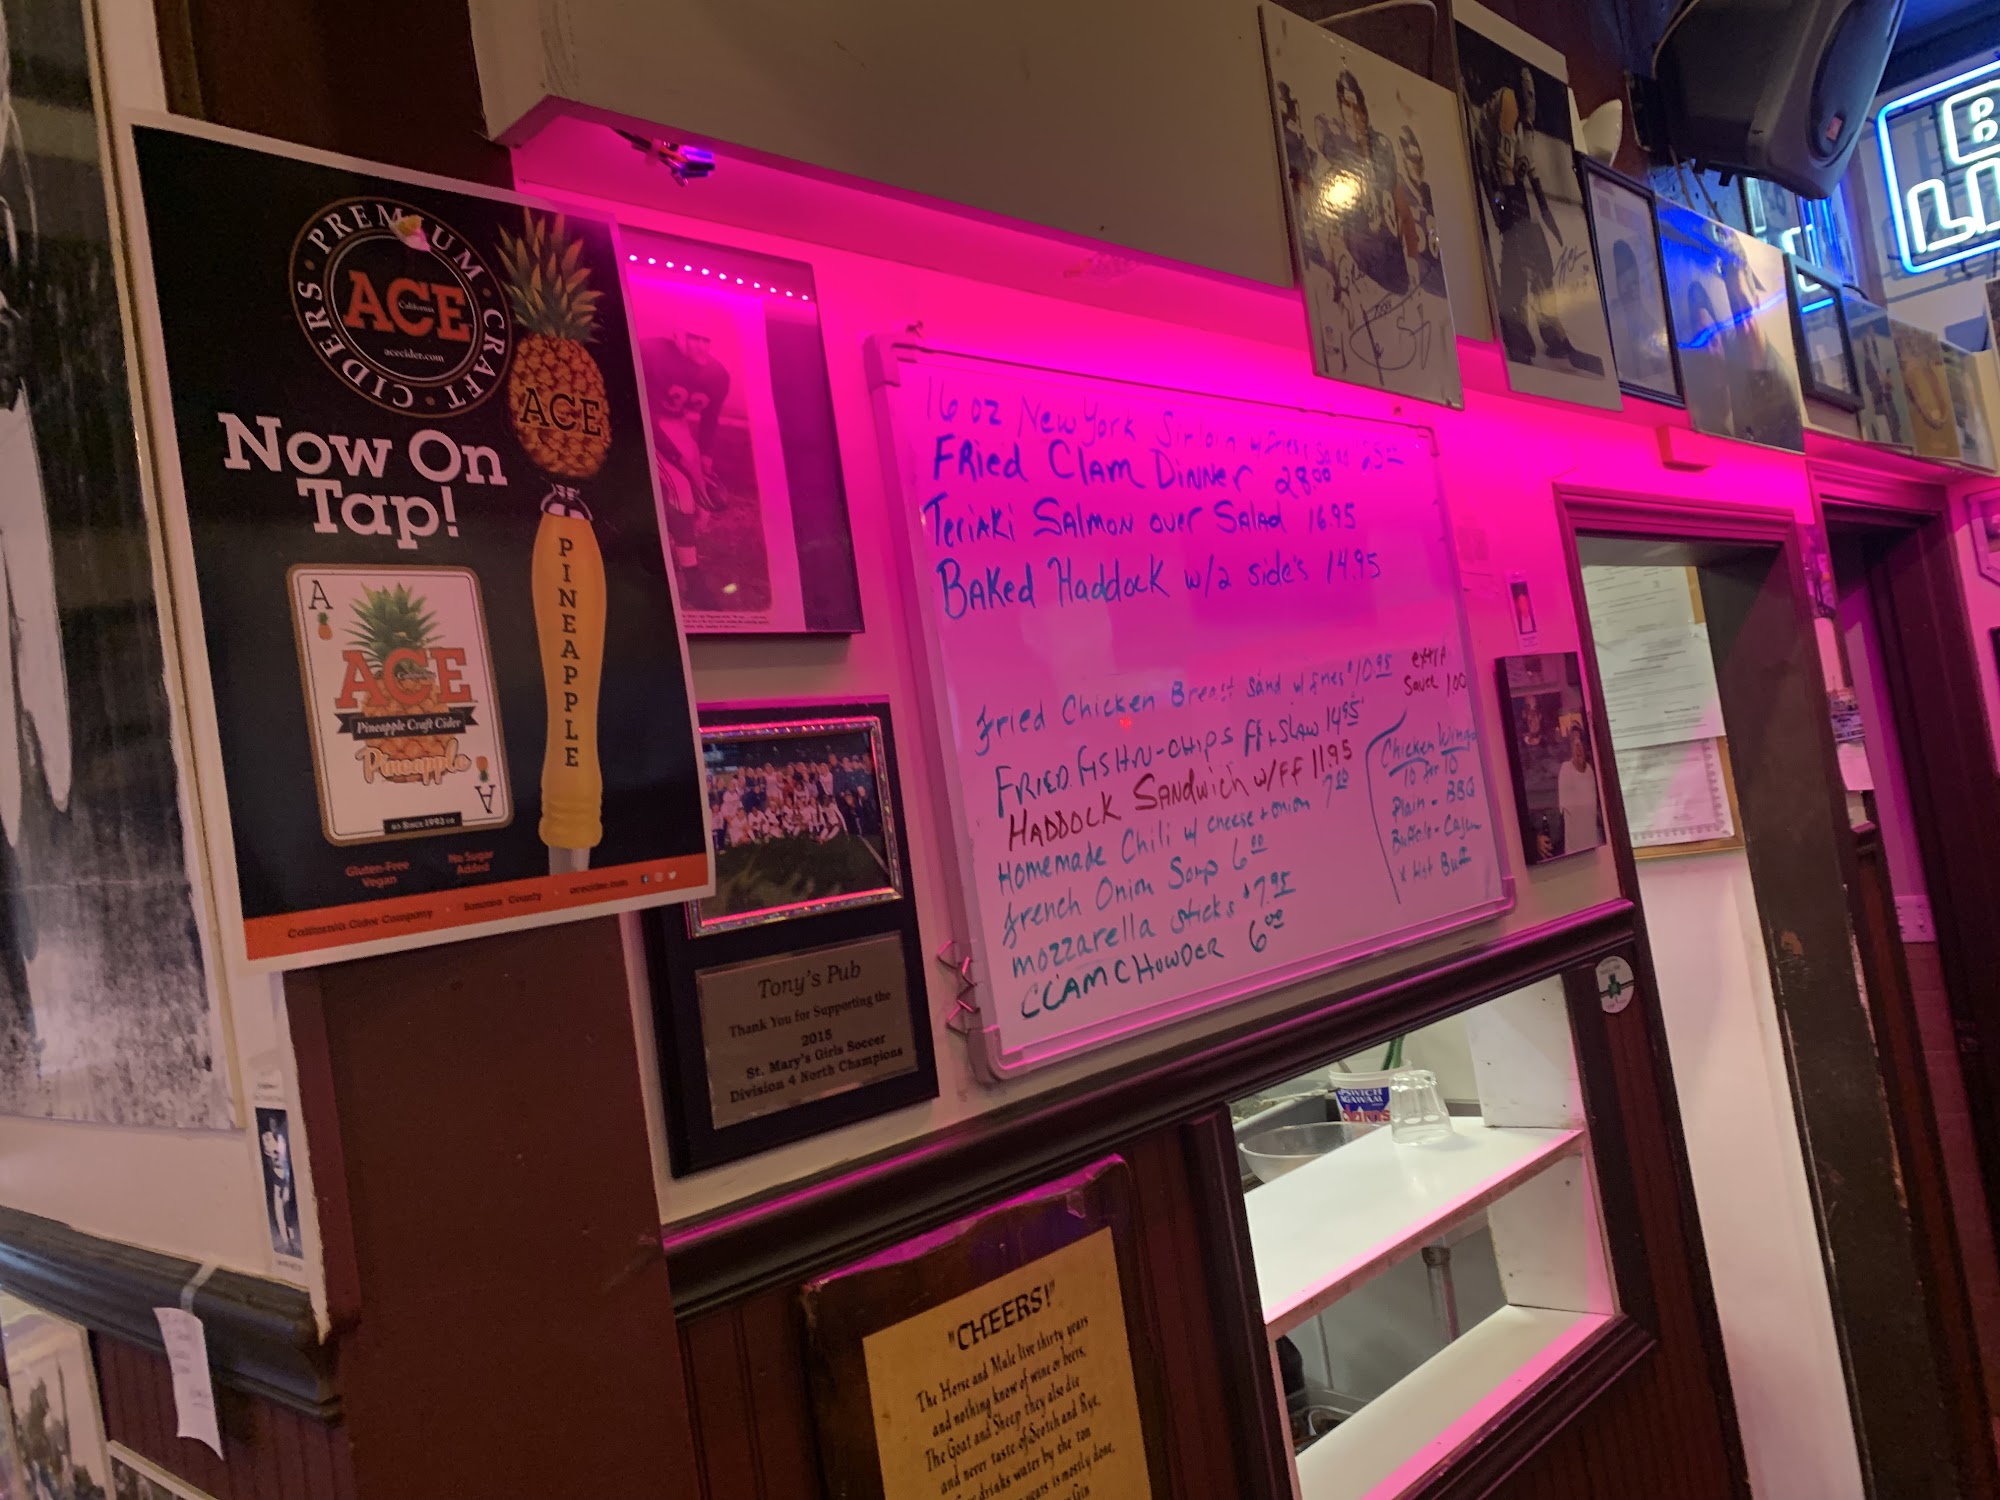 PREMIUM · CRAFT · CIDERS ·
ACE
California
acecider.com
ACE
Now On
Tap!
PINEAPPLE
A
ACE
California
Pineapple Craft Cider
Pineapple
A
Since 1993
Gluten-Free
Vegan
No Sugar
Added
California Cider Company · Sonoma County · acecider.com
32
16 oz New York Sirloin w/fries, Salad 25.00
Fried Clam Dinner 28.00
Teriaki Salmon over Salad 16.95
Baked Haddock w/2 side's 14.95
fried Chicken Breast Sand w/fries $10.95
extra
sauce 1.00
FRIED FISH-N-CHIPS FF + SLAW 14.95
HADDOCK SANDWICH w/FF 11.95
Homemade Chili w/ cheese + onion 7.00
french Onion Soup 6.00
mozzarella sticks $7.95
CLAM CHOWDER 6.00
Chicken Wings
10 for 10
Plain - BBQ
Buffalo - Cajun
x Hot Buff
Tony's Pub
Thank You for Supporting the
2015
St. Mary's Girls Soccer
Division 4 North Champions
IPSWICH
AGAWAM
CLAMS
"CHEERS!"
The Horse and Mule live thirty years
and nothing know of wine or beers.
The Goat and Sheep they also die
and never taste of Scotch and Rye.
drinks water by the ton
years is mostly done.
Gin
B
LI